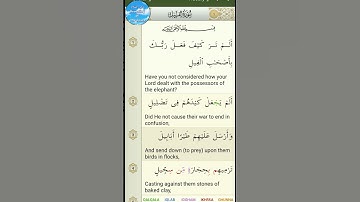 سورة الفيل
بِسْمِ اللَّهِ الرَّحْمَٰنِ الرَّحِيمِ
أَلَمْ تَرَ كَيْفَ فَعَلَ رَبُّكَ
بِأَصْحَٰبِ ٱلْفِيلِ
Have you not considered how your
Lord dealt with the possessors of
the elephant?
أَلَمْ يَجْعَلْ كَيْدَهُمْ فِى تَضْلِيلٍ
Did He not cause their war to end in
confusion,
وَأَرْسَلَ عَلَيْهِمْ طَيْرًا أَبَابِيلَ
And send down (to prey) upon them
birds in flocks,
تَرْمِيهِم بِحِجَارَةٍ مِّن سِجِّيلٍ
Casting against them stones of
baked clay,
QALQALA IQLAB IDGHAM IKHFAA GHUNNA